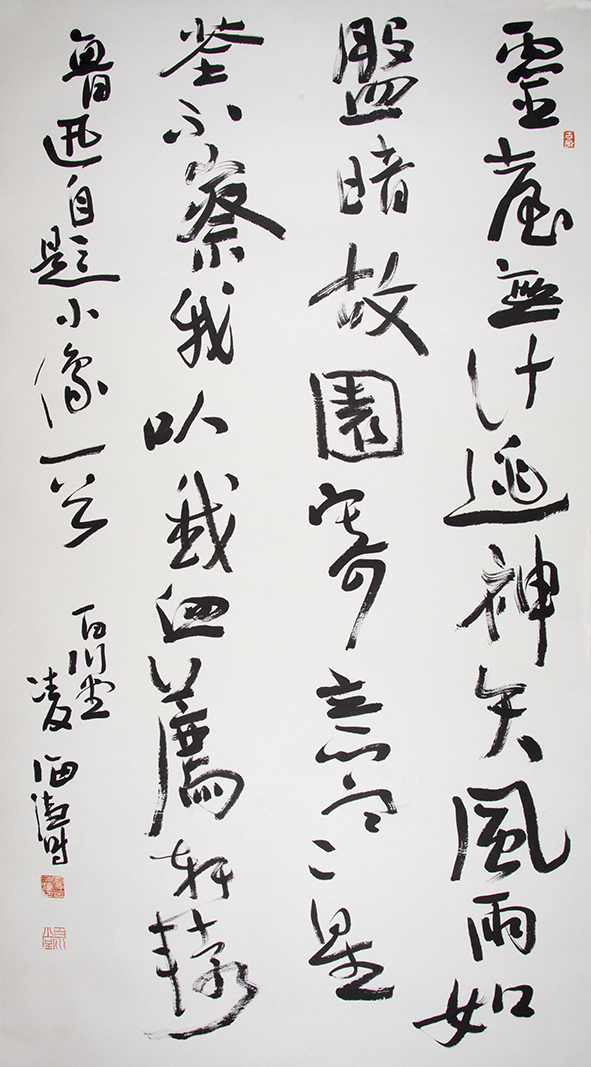 靈臺無計逃神矢風雨如
盤暗故園寄意寒星
荃不察我以我血薦軒轅
魯迅自題小像一首
百川堂
凌海濤